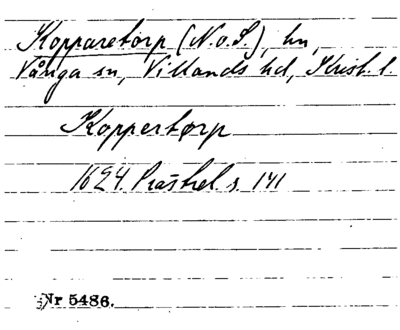 Kopparetorp (N. o. S.), hn,
Vånga sn, Villands hd, Krist. l.
Koppertorp
1624. Prästrel s. 141
Nr 5486.